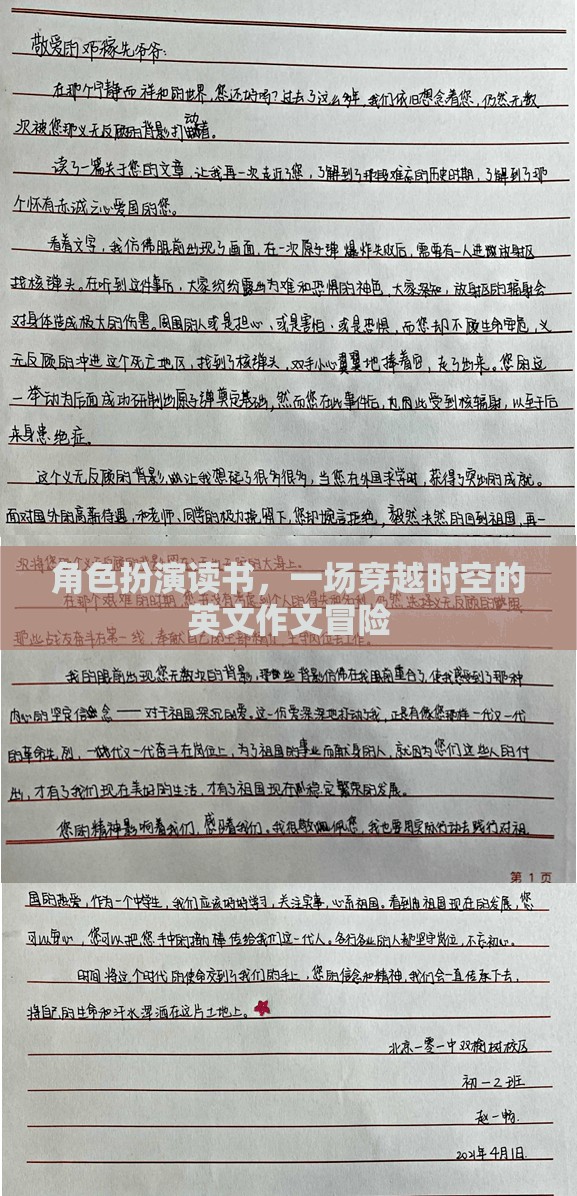 敬爱的邓稼先爷爷：
在那个宁静而祥和的世界，您还好吗？过去了这么多年，我们依旧想念着您，仍然无数
次被您那义无反顾的背影打动着。
读了一篇关于您的文章，让我再一次走近了您，了解到了那段难忘的历史时期，了解到了那
个怀有赤诚之心爱国的您。
看着文字，我仿佛眼前出现了画面，在一次原子弹爆炸失败后，需要有一人进放射区
找核弹头。在听到这件事后，大家纷纷露出为难和恐惧的神色，大家深知，放射区的辐射会
对身体造成极大的伤害。周围的人或是担心，或是害怕，或是恐惧，而您却不顾生命安危，义
无反顾的冲进这个死亡地区，找到了核弹头，双手小心翼翼地捧着它，走了出来。您的这
一举动为后面成功研制出原子弹奠定基础，然而您在此事件后，因此受到核辐射，以至于后
来身患绝症。
这个义无反顾的背影，让我想起了很多很多，当您在外国求学时，获得了突出的成就。
面对国外的高薪待遇，和老师、同学的极力挽留下，您却婉言拒绝，毅然决然的回到祖国，再一
角色扮演读书，一场穿越时空的
英文作文冒险
那些战友奋斗在第一线，奉献自己的
我的眼前出现您无数次的背影，那些背影仿佛在我眼前重合了，使我感受到了那种
内心的坚定信念——对于祖国深沉的爱。这一份爱深深地打动了我，正是有像您那样一代又一代
的革命先烈，一代又一代奋斗在岗位上，为了祖国的事业而献身的人，就因为您们这些人的付
出，才有了我们现在美好的生活，才有了祖国现在稳定繁荣的发展。
您的精神影响着我们，感染着我们。我很敬佩您，我也要用实际行动去践行对祖
第 1 页
国的热爱，作为一个中学生，我们应该好好学习，关注实事，心系祖国。看到的祖国现在的发展，您
可以安心，您可以把您手中的接力棒传给我们这一代人。各行各业的人都坚守岗位，不忘初心。
时间将这个时代的使命交到了我们的手上，您的信念和精神，我们会一直传承下去，
将自己的生命和汗水挥洒在这片土地上。
北京一零一中双榆树校区
初一2班
赵一畅
2021年4月1日